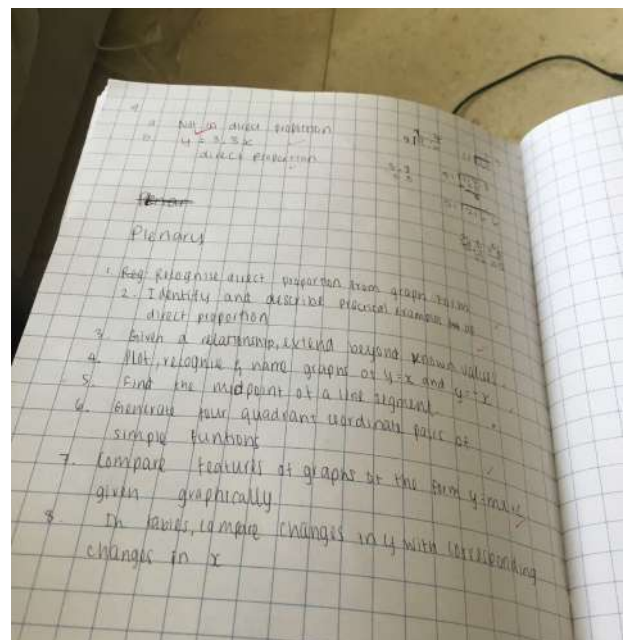 a. Not in direct proportion
b. y = 3.3x
direct proportion
Plenary
1. Recognise direct proportion from graph form
2. Identify and describe practical examples of
direct proportion
3. Given a relationship, extend beyond known values
4. Plot, recognise & name graphs of y=x and y=-x
5. Find the midpoint of a line segment
6. Generate four quadrant coordinate pairs of
simple funtions
7. Compare features of graphs of the form y=mx
given graphically
8. In tables, compare changes in y with corresponding
changes in x